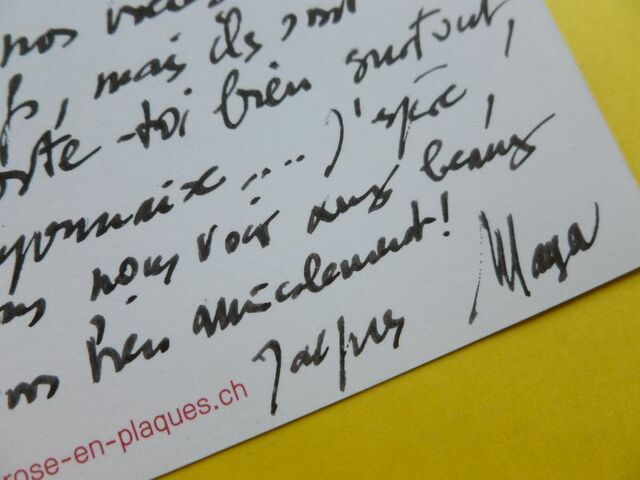 nos
, mais ils sont
-toi bien surtout,
... J'espère,
nous voir aux beaux
bien amicalement!
Jacques Maya
rose-en-plaques.ch